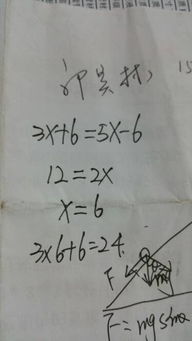 15
3x+6=5x-6
12=2x
x=6
3x6+6=24
F
F=mgsinα